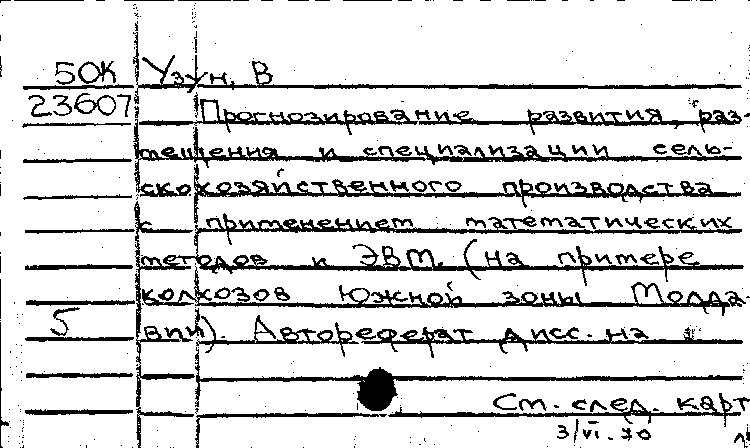 50К Узун, В
23607 Прогнозирование развития, раз-
мещения и специализации сель-
скохозяйственного производства
с применением математических
методов и ЭВМ. (на примере
колхозов Южной зоны Молда-
5 вии). Автореферат дисс. на
См. след. карт
3/VI.70